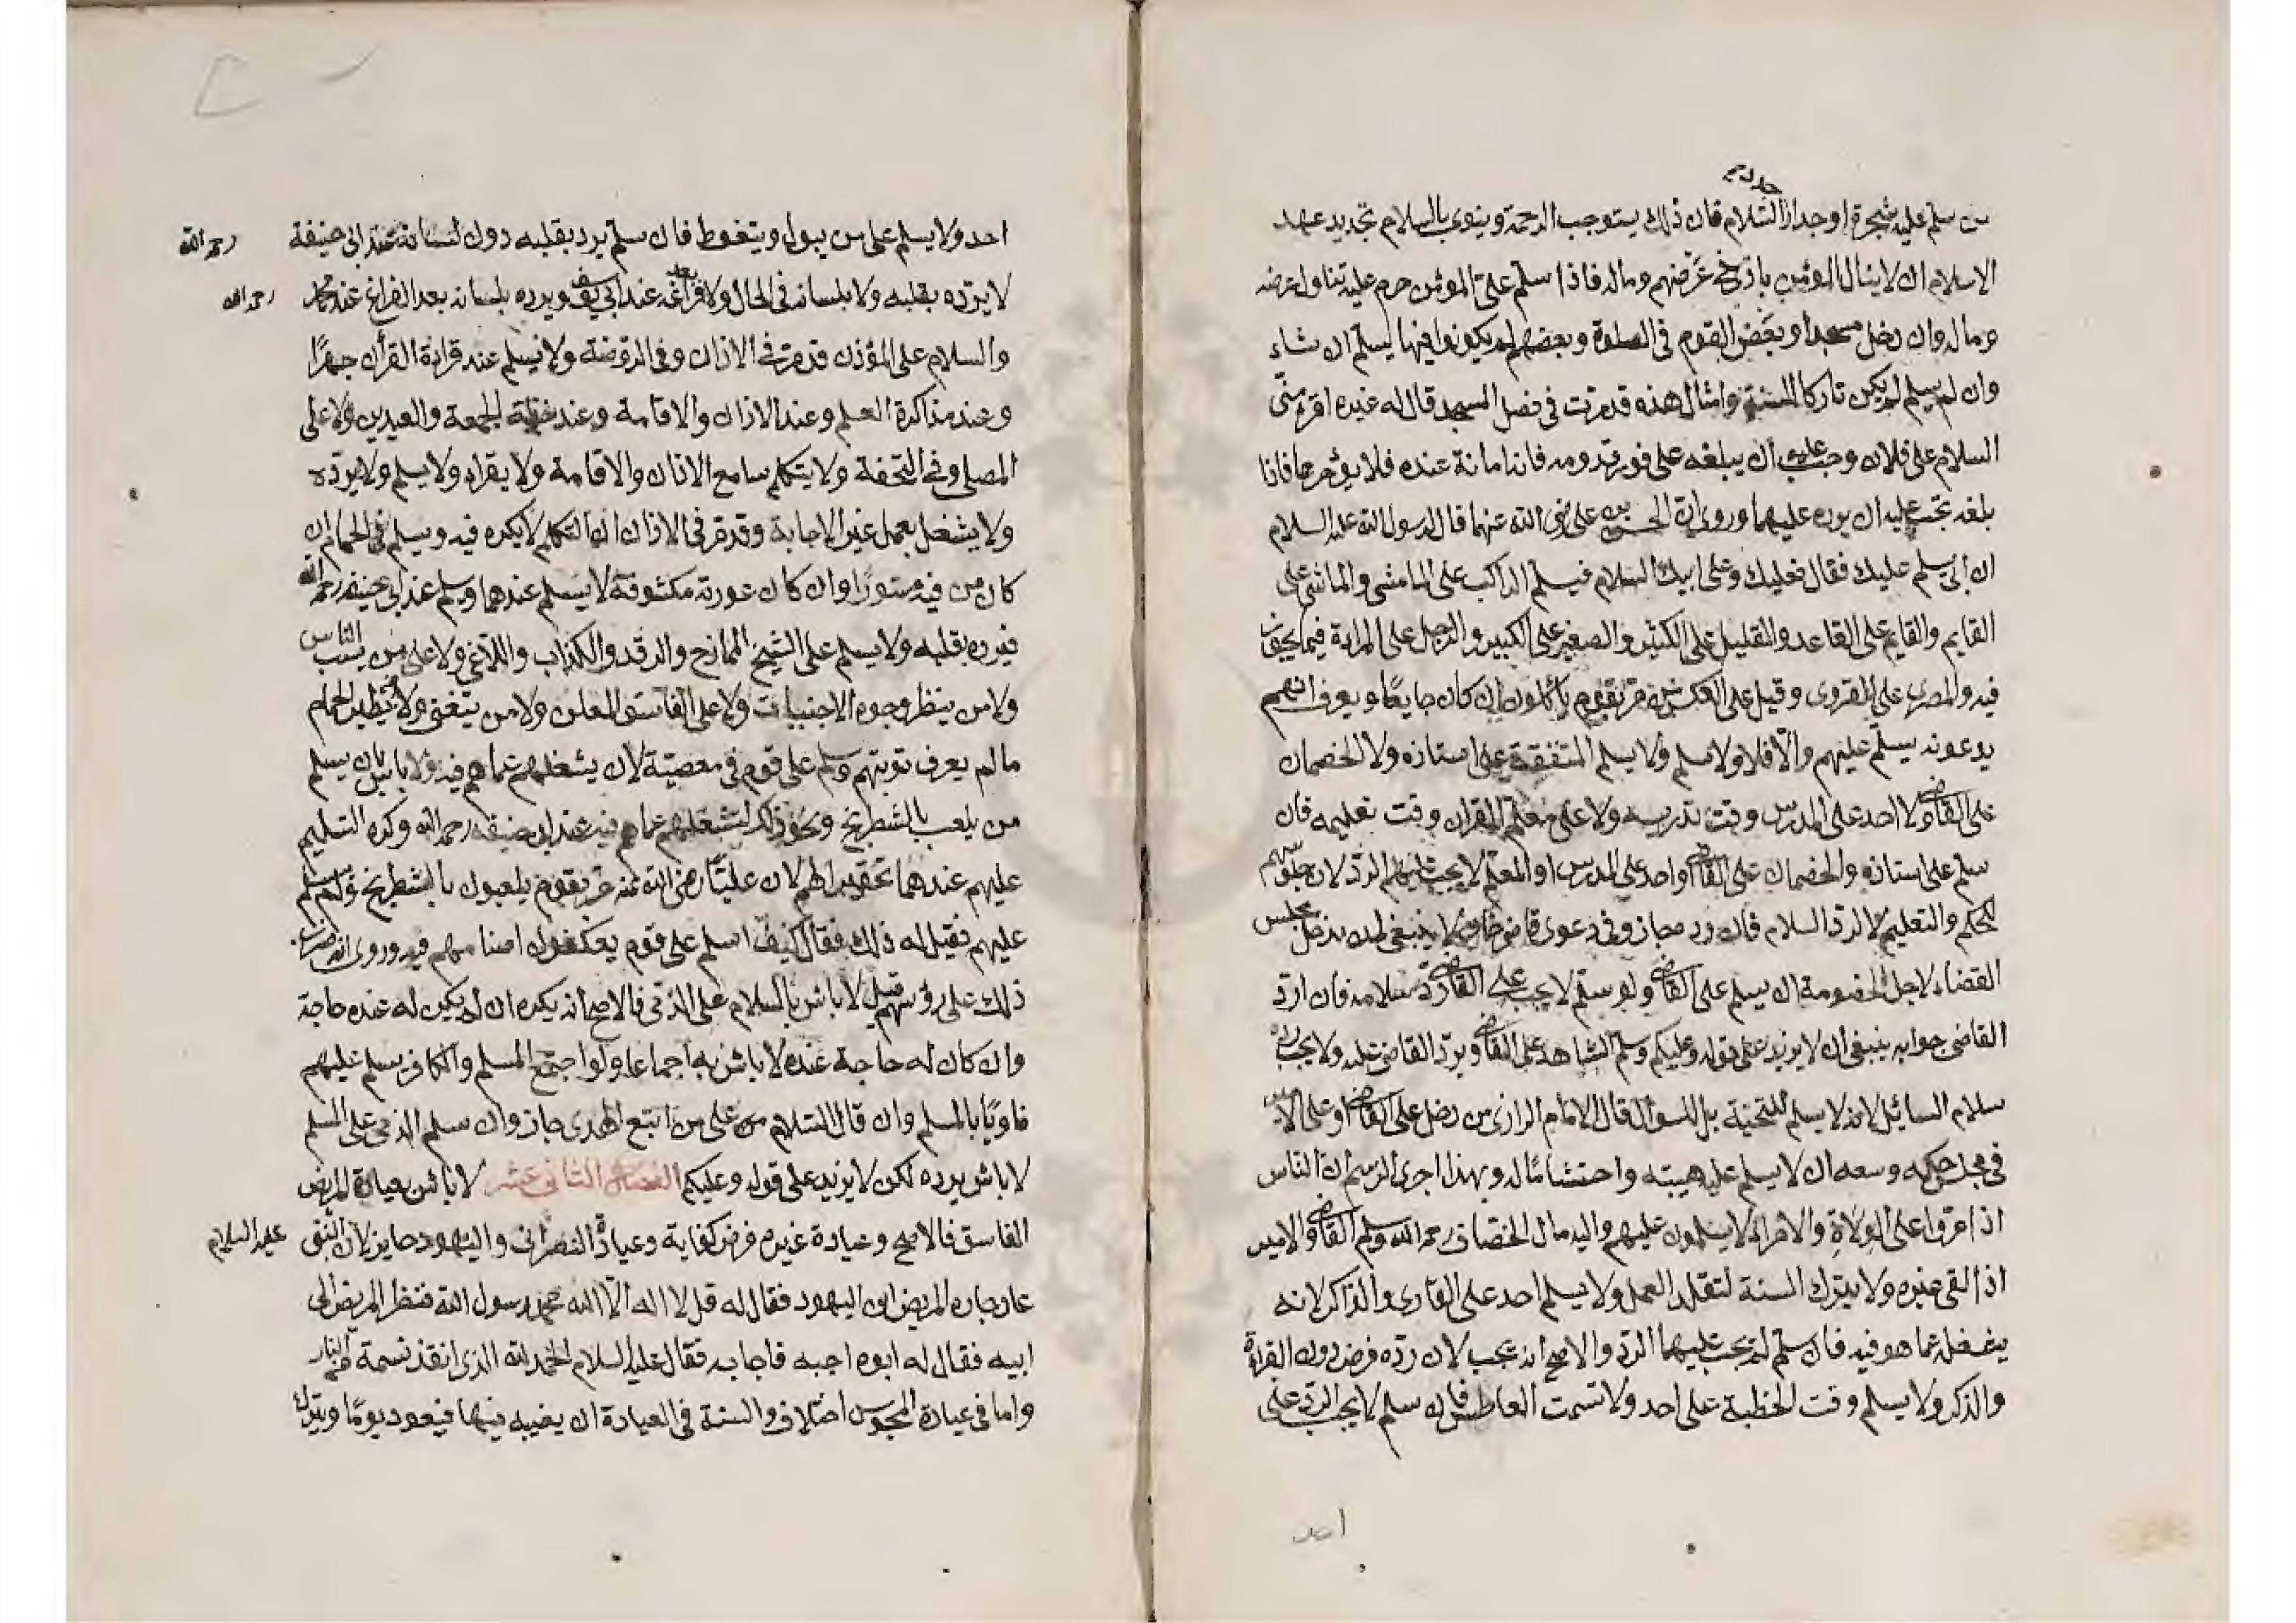 من سلم عليه شجرة او جدار السلام فان ذلك يستوجب الرحمة وينوى بالسلام تجديد عهد
الاسلام ان لا ينال المؤمن باذى في عرضهم وماله فاذا سلم على المؤمن حرم عليه تناول عرضه
وماله وان دخل مسجدا وبعض القوم في الصلوة وبعضهم لم يكونوا فيها يسلم ان شاء
وان لم يسلم لم يكن تاركا للسنة وامثال هذه قد مرت في فصل المسجد قال له غيره اقرء منى
السلام على فلان وجب عليه ان يبلغه على فور قدومه فانه امانة عنده فلا يؤخرها فاذا
بلغه تجب عليه ان يرده عليهما وروى ان الحسن بن على رضى الله عنهما قال لرسول الله عليه السلام
ان ابى يسلم عليك فقال فعليك وعلى ابيك السلام فيسلم الراكب على المامشى والماشى على
القايم والقايم على القاعد والقليل على الكثير والصغير على الكبير والرجل على المراءة فيما يجوز
فيه والمصرى على القروى وقيل على العكس ومن مر بقوم يأكلون ان كان جايعا ويعرف انهم
يدعونه يسلم عليهم والا فلا ولا سلم ولا يسلم المتفقه على استاذه ولا الخصمان
على القاضى ولا احد على المدرس وقت تدريسه ولا على معلم القران وقت تعليمه فان
سلم على استاذه والخصمان على القاضى او احد على المدرس او المعلم لا يجب عليهم الرد لان جلوسهم
للحكم والتعليم لا لرد السلام فان رد جاز وفي دعوى قاضيخان ولا ينبغى لمن يدخل مجلس
القضاء لاجل الخصومة ان يسلم على القاضى ولو سلم لا يجب على القاضى رد سلامه فان ارد
القاضى جوابه ينبغى ان لا يزيد على قوله وعليكم وسلم الشاهد على القاضى ويرد القاضى عليه ولا يجب رد
سلام السائل لانه لا يسلم للتحية بل للسؤال قال الامام الرازى من دخل على القاضى او على الامير
في مجلس حكمه وسعه ان لا يسلم عليه هيبته واحتشاما له وبهذا اجرى الرسم ان الناس
اذا مروا على الولاة والامراء لا يسلمون عليهم واليه مال الخصاف رحمه الله وسلم القاضى والامير
اذا لقى غيره ولا يترك السنة لتقلد العمل ولا يسلم احد على القارى والذاكر لانه
يشغله عما هو فيه فان سلم لم يجب عليهما الرد والاصح انه يجب لان رده فرض دون القراءة
والذكر ولا يسلم وقت الخطبة على احد ولا تشمت العاطس فان سلم لا يجب الرد على
احد
احد ولا يسلم على من يبول ويتغوط فان سلم يرد بقلبه دون لسانه عند ابى حنيفة رحمه الله
لا يرده بقلبه ولا بلسانه في الحال ولا بعد فراغه عند ابى يوسف ويرده بلسانه بعد الفراغ عند محمد رحمه الله
والسلام على المؤذن قد مر في الاذان وفي الروضة ولا يسلم عند قراءة القرأن جهرا
وعند مذاكرة العلم وعند الاذان والاقامة وعند خطبة الجمعة والعيدين ولا على
المصلى وفي التحفة ولا يتكلم سامع الاذان والاقامة ولا يقراء ولا يسلم ولا يرده
ولا يشغل بعمل غير الاجابة وقد مر في الاذان ان التكلم لا يكره فيه ويسلم في الحمام ان
كان من فيه مستورا وان كان عورته مكشوفة لا يسلم عندهما وسلم عند ابى حنيفة رحمه الله
فيرده بقلبه ولا يسلم على الشيخ الممازح والرقد والكذاب واللاغى ولا على من يسب الناس
ولا من ينظر وجوه الاجنبيات ولا على الفاسق المعلن ولا من يتغنى ولا مطير الحمام
ما لم يعرف توبتهم وسلم على قوم في معصية لان يشغلهم عما هم فيه ولا باس بان يسلم
من يلعب بالشطرنج ونحو ذلك لتشغلهم عما هم فيه عند ابى حنيفة رحمه الله وكره التسليم
عليهم عندهما تحقيرا لهم لان عليا رضى الله عنه مر بقوم يلعبون بالشطرنج ولم يسلم
عليهم فقيل له ذلك فقال كيف اسلم على قوم يعكفون اصناما لهم فيه وروى انه ضرب
ذلك على رؤسهم قيل لا باس بالسلام على الذمى فالاصح انه يكره ان لم يكن له عنده حاجة
وان كان له حاجة عنده لا باس به اجماعا ولو اجتمع المسلم والكافر يسلم عليهم
ناويا بالمسلم وان قال السلام على من اتبع الهدى جاز وان سلم الذمى على المسلم
لا باس برده لكن لا يزيد على قوله وعليكم الفصل الثانى عشر لا باس بعيادة المريض
الفاسق فالاصح وعيادة غيره فرض كفاية وعيادة النصرانى واليهود جايز لان النبى عليه السلام
عاد جاره المريض ابن اليهود فقال له قل لا اله الا الله محمد رسول الله فنظر المريض الى
ابيه فقال له ابوه اجبه فاجابه فقال عليه السلام الحمد لله الذى انقذ نسمة من النار
واما في عيادة المجوس اختلاف والسنة في العيادة ان يغيبه فيها فيعود يوما ويترك